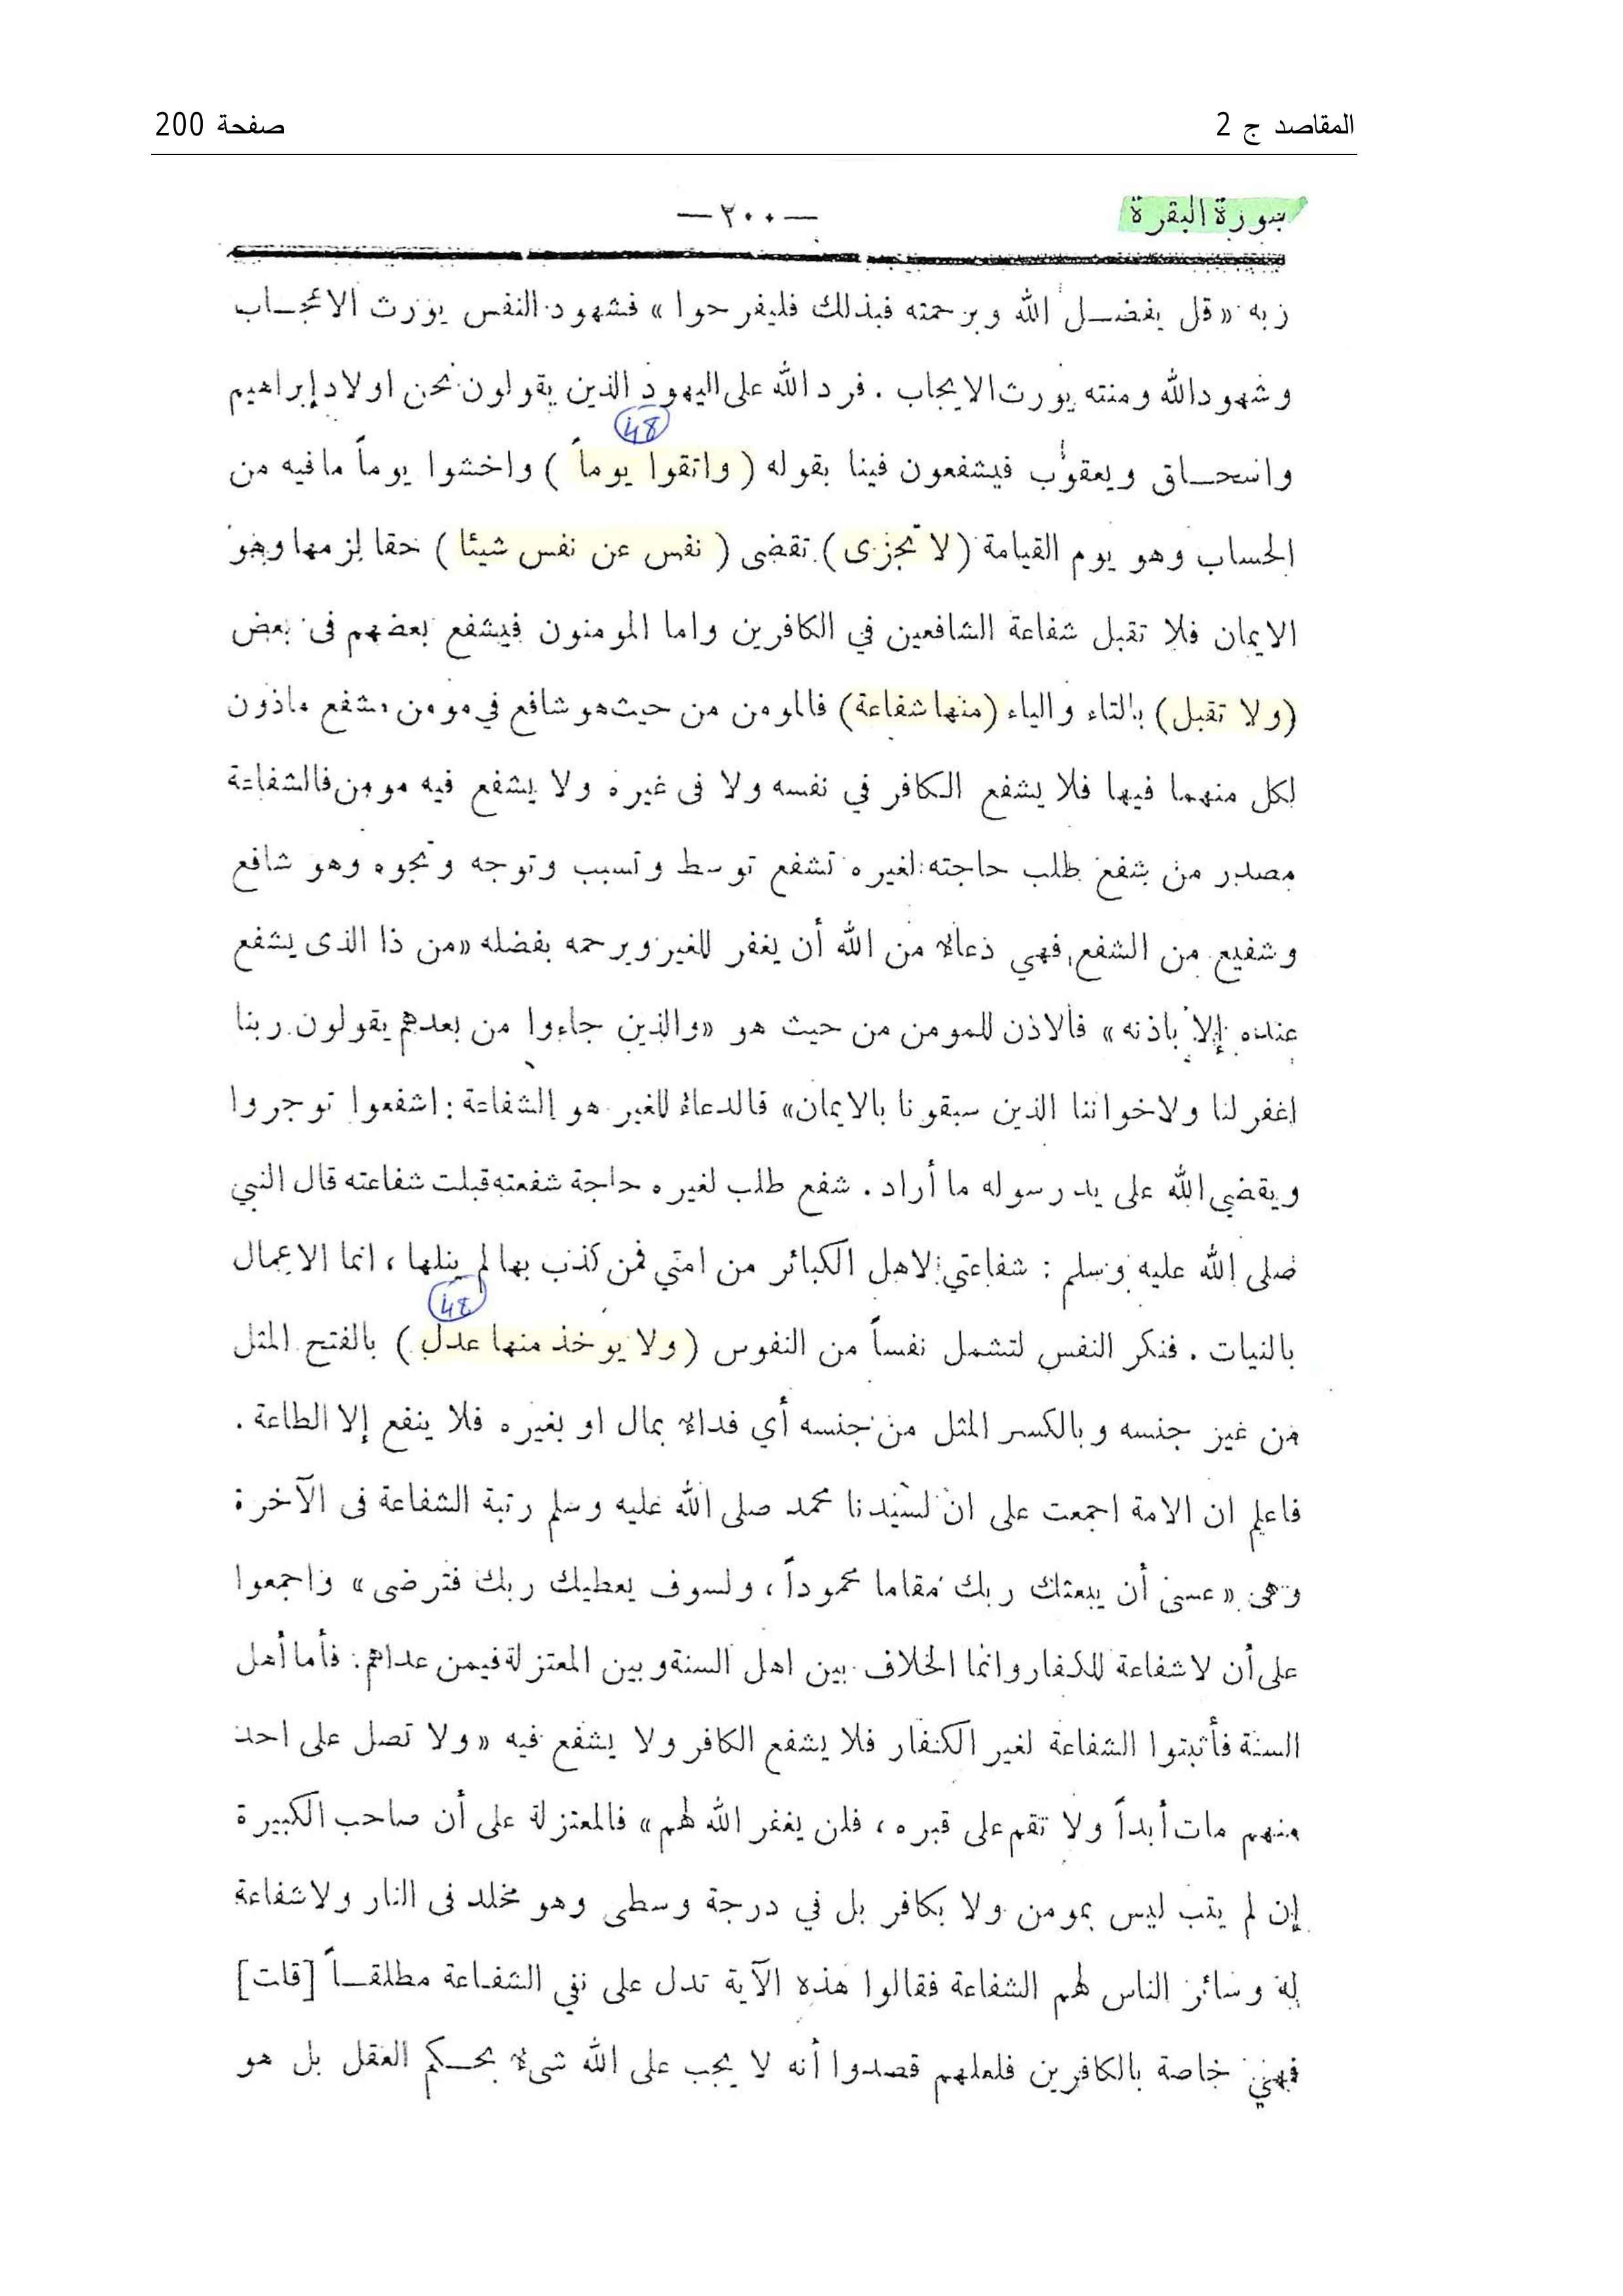 المقاصد ج 2 صفحة 200
سورة البقرة —٢٠٠—
ربه «قل بفضل الله وبرحمته فبذلك فليفرحوا» فشهود النفس يورث الاعجاب
وشهود الله ومنته يورث الايجاب . فرد الله على اليهود الذين يقولون نحن اولاد إبراهيم
48
واسحاق ويعقوب فيشفعون فينا بقوله (واتقوا يوماً) واخشوا يوماً مافيه من
الحساب وهو يوم القيامة (لا تجزى) تقضى (نفس عن نفس شيئا) حقا لزمها وهو
الايمان فلا تقبل شفاعة الشافعين في الكافرين واما المومنون فيشفع بعضهم فى بعض
(ولا تقبل) بالتاء والياء (منها شفاعة) فالمومن من حيث هو شافع في مومن مشفع ماذون
لكل منهما فيها فلا يشفع الكافر في نفسه ولا فى غيره ولا يشفع فيه مومن فالشفاعة
مصدر من شفع طلب حاجته لغيره تشفع توسط وتسبب وتوجه ونحوه وهو شافع
وشفيع من الشفع فهي دعاء من الله أن يغفر للغير ويرحمه بفضله «من ذا الذى يشفع
عنده إلا باذنه» فالاذن للمومن من حيث هو «والذين جاءوا من بعدهم يقولون ربنا
اغفر لنا ولاخواننا الذين سبقونا بالايمان» فالدعاء للغير هو الشفاعة : اشفعوا توجروا
ويقضي الله على يد رسوله ما أراد . شفع طلب لغيره حاجة شفعته قبلت شفاعته قال النبي
صلى الله عليه وسلم : شفاعتي لاهل الكبائر من امتي فمن كذب بها لم ينلها ، انما الاعمال
48
بالنيات . فنكر النفس لتشمل نفساً من النفوس (ولا يوخذ منها عدل) بالفتح المثل
من غير جنسه وبالكسر المثل من جنسه أي فداء بمال او بغيره فلا ينفع إلا الطاعة .
فاعلم ان الامة اجمعت على ان لسيدنا محمد صلى الله عليه وسلم رتبة الشفاعة فى الآخرة
وهى «عسى أن يبعثك ربك مقاما محموداً ، ولسوف يعطيك ربك فترضى» واجمعوا
على أن لاشفاعة للكفار وانما الخلاف بين اهل السنة وبين المعتزلة فيمن عداهم : فأما أهل
السنة فأثبتوا الشفاعة لغير الكفار فلا يشفع الكافر ولا يشفع فيه «ولا تصل على احد
منهم مات أبداً ولا تقم على قبره ، فلن يغفر الله لهم» فالمعتزلة على أن صاحب الكبيرة
إن لم يتب ليس بمومن ولا بكافر بل في درجة وسطى وهو مخلد فى النار ولاشفاعة
له وسائر الناس لهم الشفاعة فقالوا هذه الآية تدل على نفي الشفاعة مطلقـاً [قلت]
فهي خاصة بالكافرين فلعلهم قصدوا أنه لا يجب على الله شىء بحـكم العقل بل هو